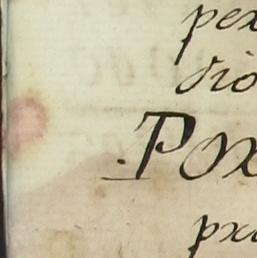 pex
dio
.Pox
pxi